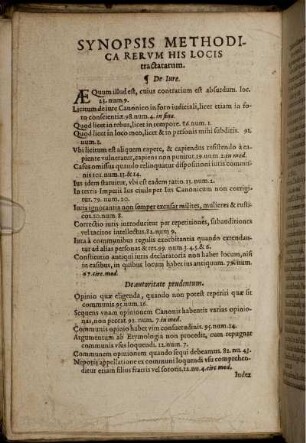 SYNOPSIS METHODI-
CA RERVM HIS LOCIS
tractatarum.
¶ De Iure.
ÆQuum illud est, cuius contrarium est absurdum. loc.
23. num. 9.
Licitum de iure Canonico in foro iudiciali, licet etiam in foro
conscientiæ 98. num. 4. in fine.
Quod licet in rebus, licet in tempore. 86. num. 1.
Quod licet in loco meo, licet & in personis mihi subditis. 92.
num. 2.
Vbi licitum est aliquem capere, & capiendus resistendo à ca-
piente vulneratur, capiens non punitur. 19. num. 2. in med.
Casus omissus quando relinquatur dispositioni iuris commu-
nis
Ius idem statuitur, vbi est eadem ratio. 15. num. 2.
In textu Imprimi Ius Canonicum non corrigi-
tur. 79. num. 20.
Iuris ignorantia non semper excusat milites, mulieres & rusti-
cos. 20. num. 8.
Correctio iuris introducitur per repetitiones, subauditiones
vel tacitos intellectus. 82. num 9.
Iura à communibus regulis exorbitantia quando extendan-
tur ad alias personas & res. 99. num 3. 4. 5 & 6.
Constitutio antiqui iuris declaratoria non habet locum, nisi
in casibus, in quibus locum habet ius antiquum. 7
47. circ. med.
De autoritate prudentum.
Opinio quæ eligenda, quando non potest reperiri quæ sit
communis 95. num. 16.
Sequens vnam opinionem Canonis habentis varias opinio-
nes, non peccat 92. num. 7. in med.
Communis opinio habet vim consuetudinis. 95. num. 14.
Argumentum ab Etymologia non procedit, cum repugnat
communis vsus loquendi. 12. num. 7.
Communem opinionem quando sequi debeamus. 82. nu. 45.
Nepotis appellatione ex communi loquendi vsu comprehen-
ditur etiam filius fratris vel sororis. 12. nu. 4. circ. med.
Index